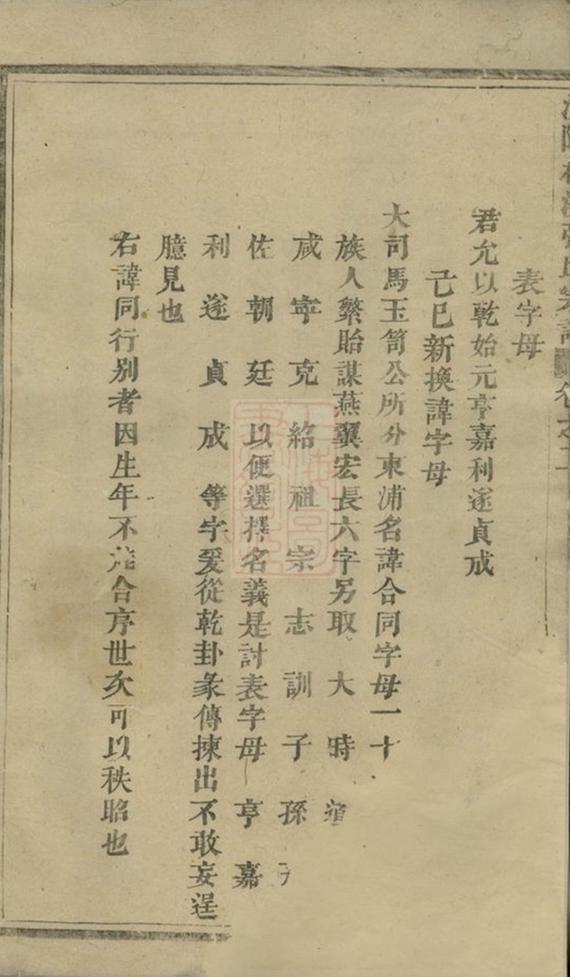 表字母
君允以乾始元亨嘉利遂貞成
己巳新換諱字母
大司馬玉笥公所分東浦名諱合同字母一十
族人繁貽謀燕翼宏長六字另取大時
咸寧克紹祖宗志訓子孫
佐朝廷以便選擇名義是討表字母亨嘉
利遂貞成等字爰從乾卦彖傳揀出不敢妄逞
臆見也
右諱同行別者因生年不合序世次可以秩昭也